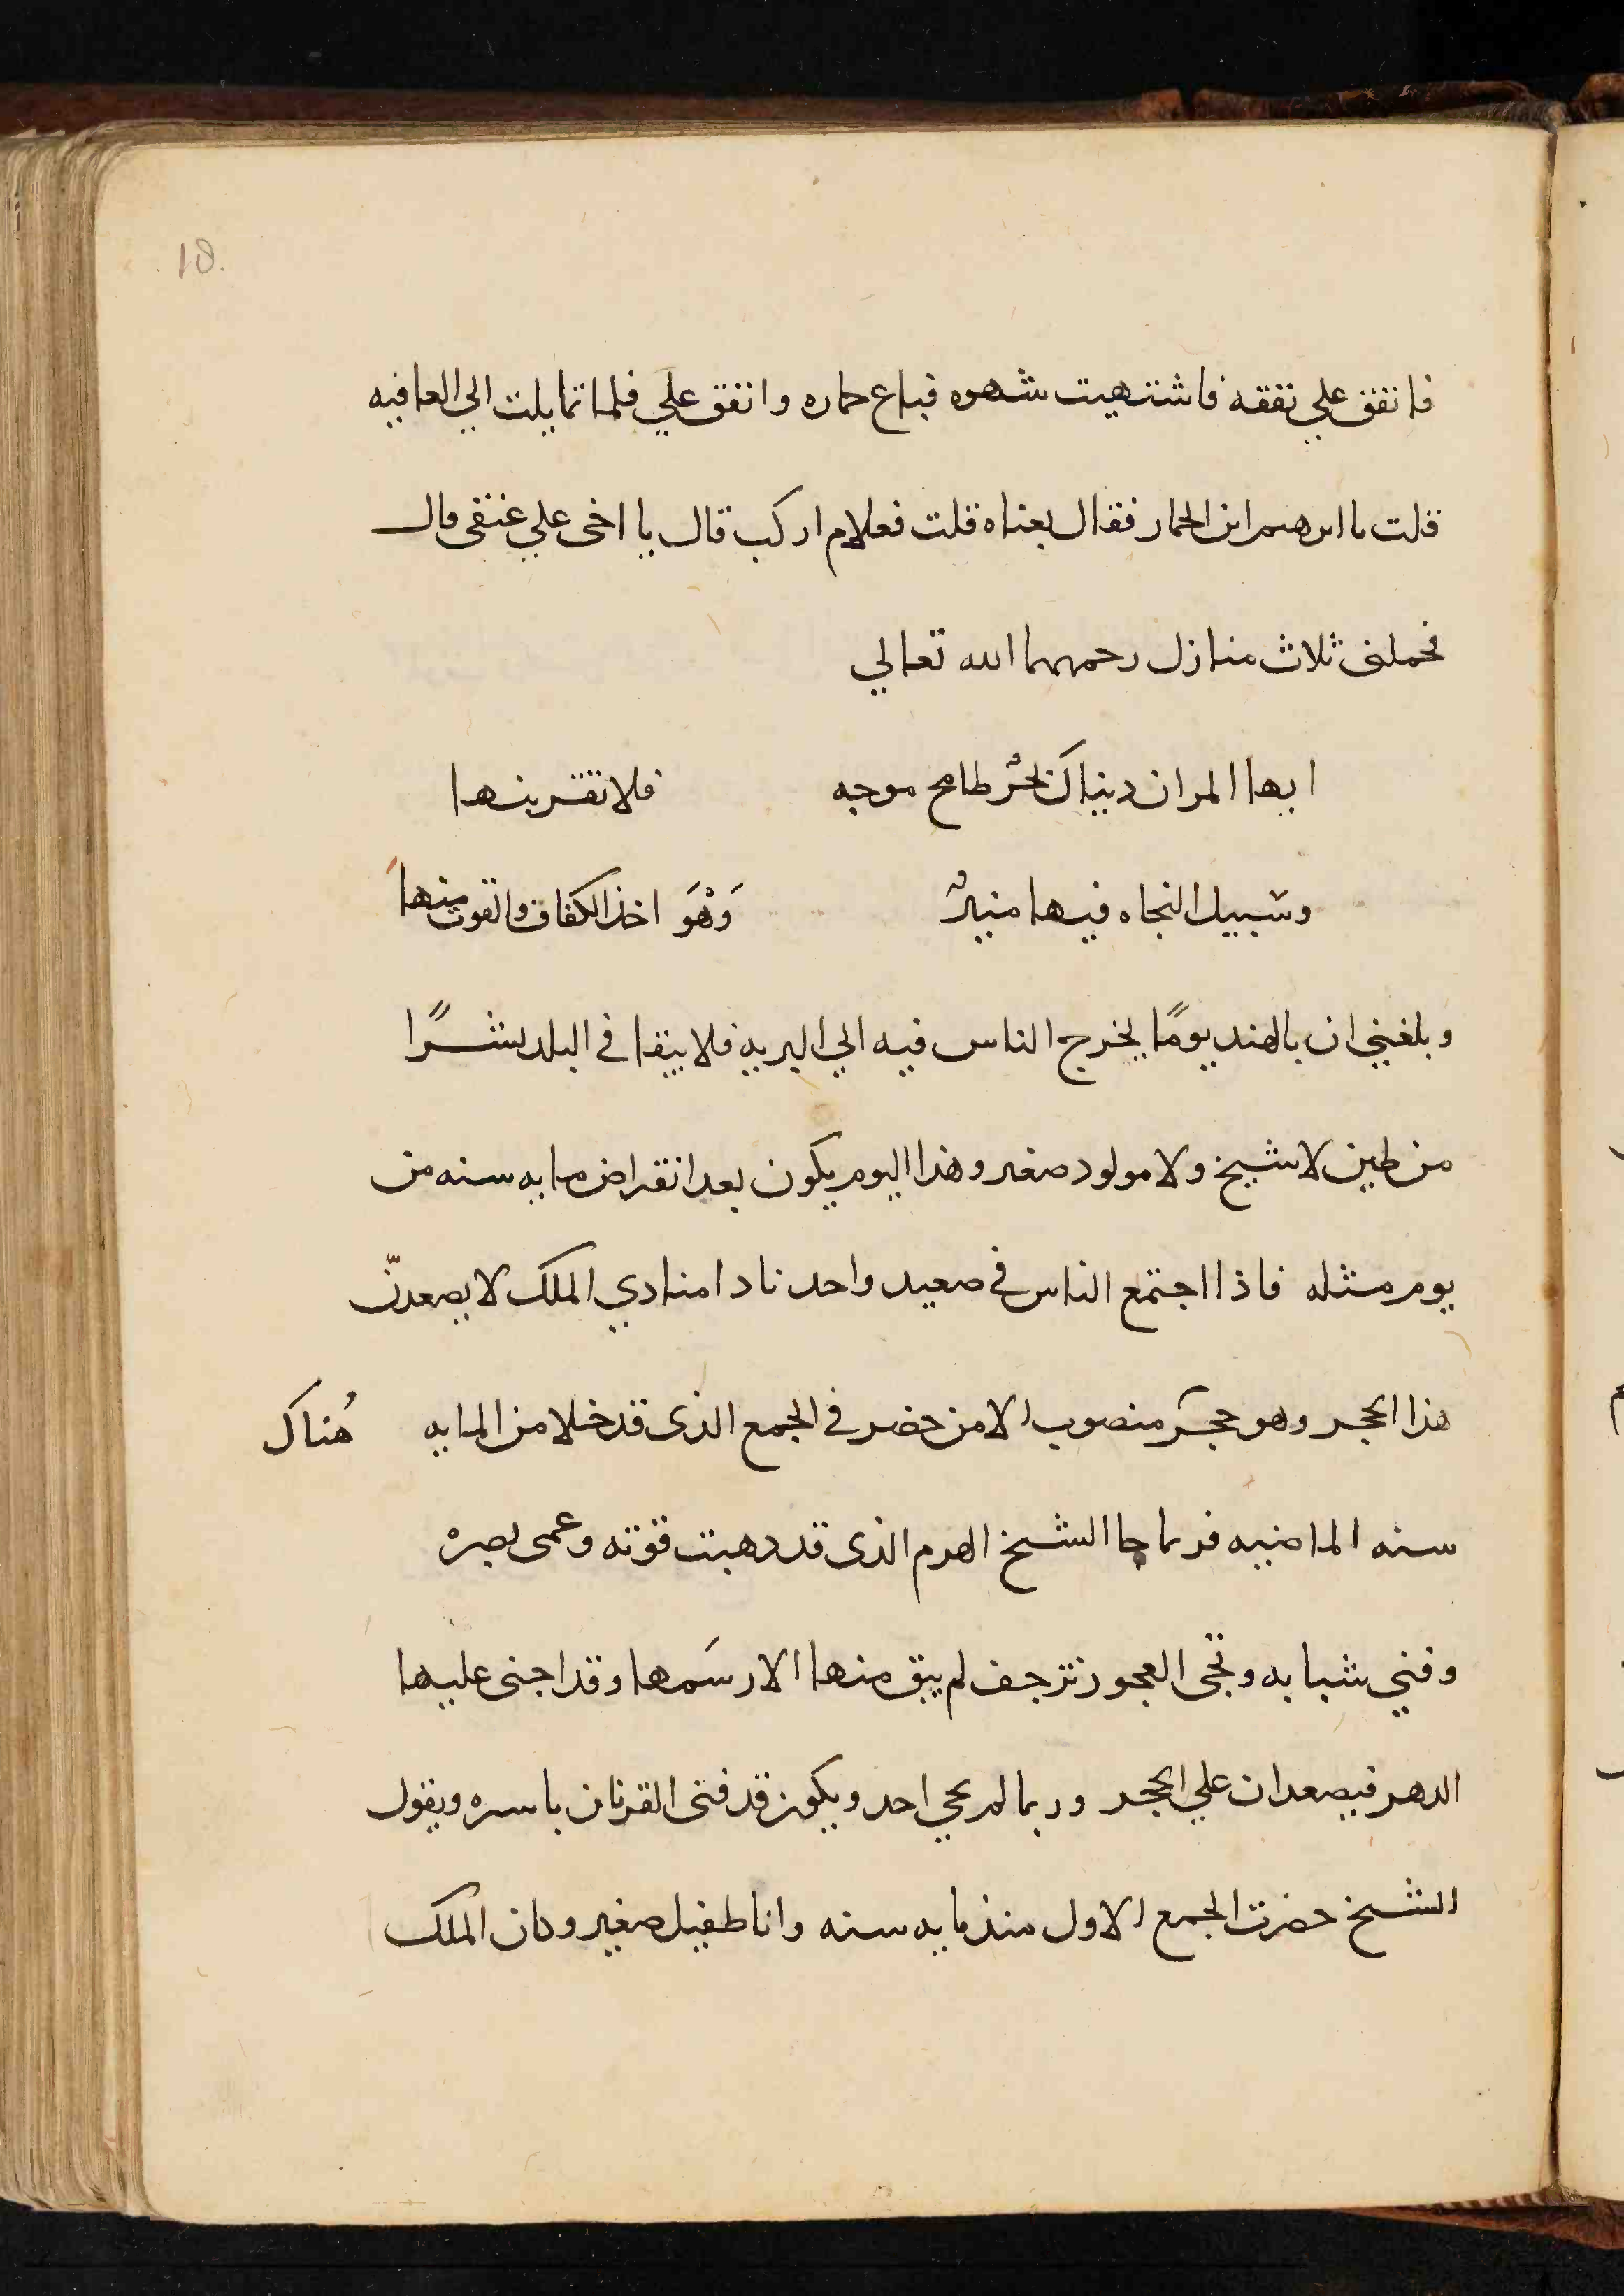 18.
فانفق علي نفقه فاشتهيت شهوه فباع حماره وانفق علي فلما تمايلت الي العافيه
قلت يا ابرهيم اين الحمار فقال بعناه قلت فعلام اركب قال يا اخى علي عنقى قال
فحملنى ثلاث منازل رحمهما الله تعالي
ايها المر ان دنياك بحرٌ طامح موجه فلا تقربنها
وسبيل النجاه فيها منيرٌ وَهْوَ اخذ الكفاف والقوت منها
وبلغني ان بالهند يومًا يخرج الناس فيه الي البريه فلا يبقا في البلد بشرًا
من طين لا شيخ ولا مولود صغير وهذا اليوم يكون بعد انقراض مايه سنه من
يوم مثله فاذا اجتمع الناس في صعيد واحد نادا منادي الملك لا يصعدنّ
هذا الحجر وهو حجر منصوب الا من حضر في الجمع الذى قد خلا من المايه هُناك
سنه الماضيه فربما جا الشيخ الهرم الذى قد دهبت قوته وعمى بصره
وفني شبابه وتجى العجوز ترجف لم يبق منها الا رسمها وقد اجنى عليها
الدهر فيصعدان علي الحجر وربما لم يجي احد ويكون قد فنى القرنان باسره ويقول
الشيخ حضرت الجمع الاول منذ مايه سنه وانا طفيل صغير وكان الملك